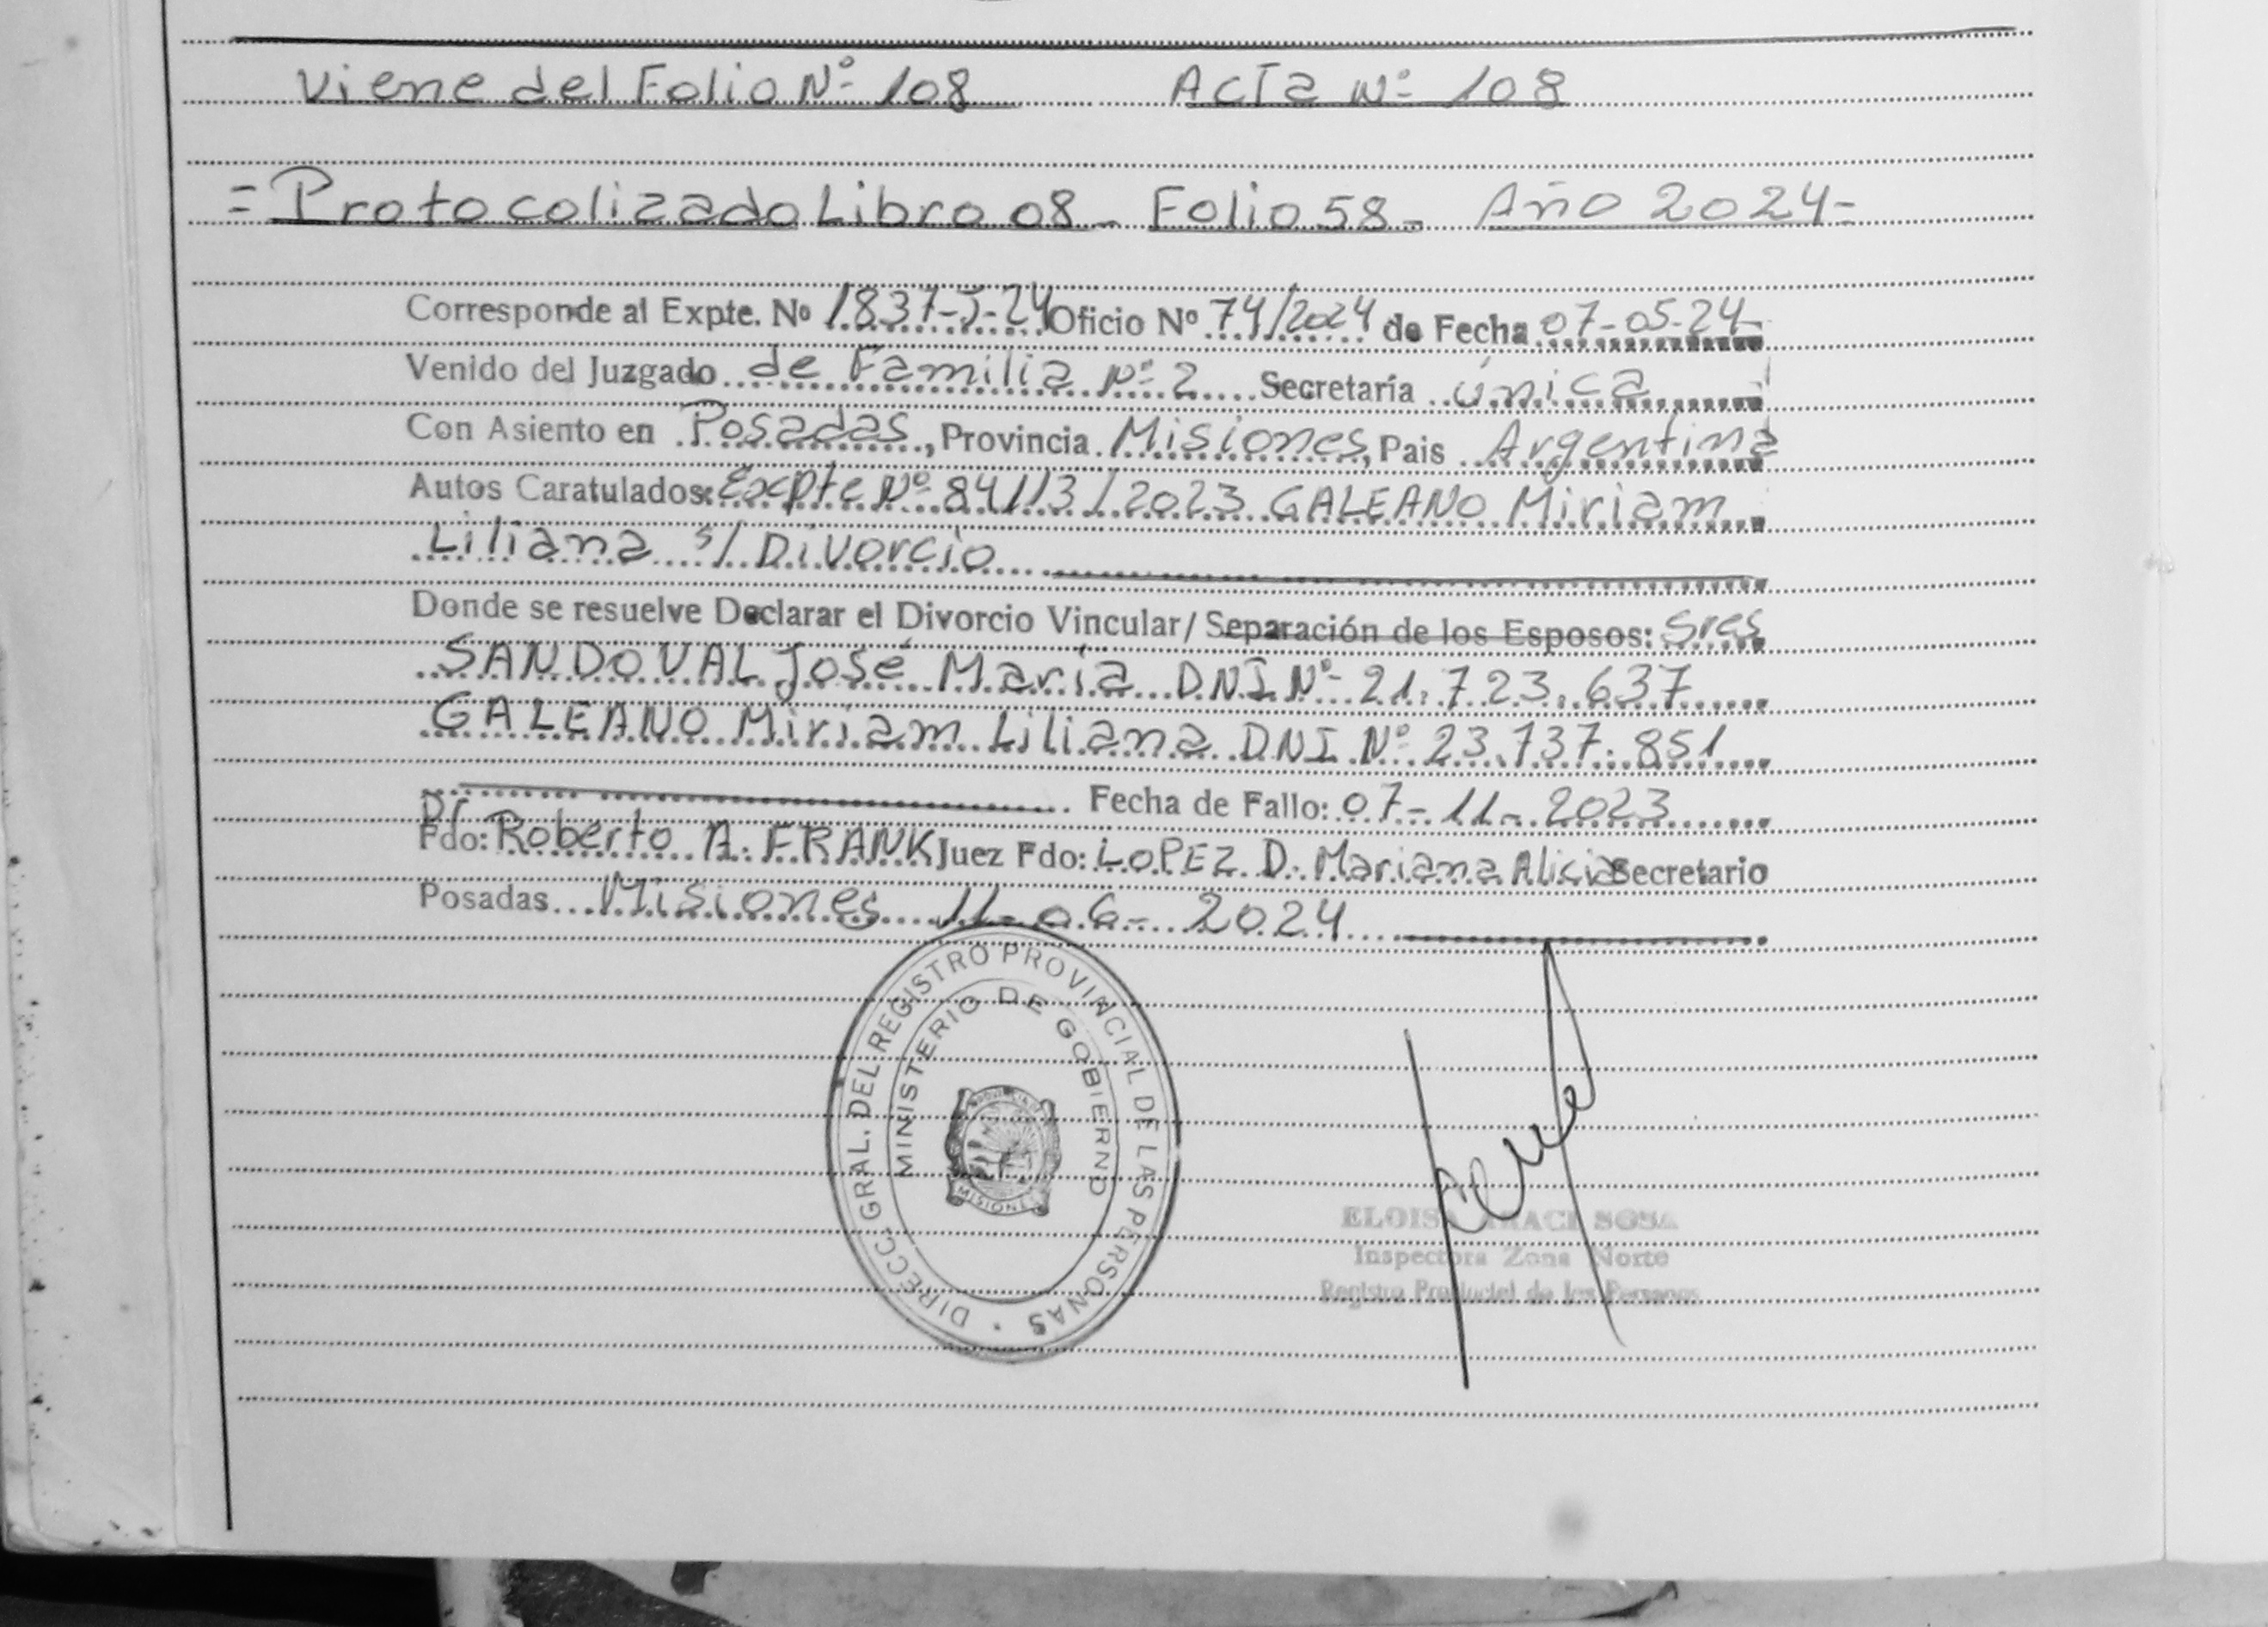 Viene del Folio Nº 108 Acta Nº 108
= Protocolizado Libro 08 - Folio 58 - Año 2024 -
Corresponde al Expte. Nº 1837-J-24 Oficio Nº 74/2024 de Fecha 07-05-24-
Venido del Juzgado de Familia Nº 2 Secretaría única
Con Asiento en Posadas, Provincia Misiones, Pais Argentina
Autos Caratulados: Expte Nº 84113/2023 GALEANO Miriam
Liliana s/ Divorcio
Donde se resuelve Declarar el Divorcio Vincular/ Separación de los Esposos: Sres
SANDOVAL José María DNI Nº 21.723.637
GALEANO Miriam Liliana DNI Nº 23.737.851
Fecha de Fallo: 07-11-2023
Dr
Fdo: Roberto A. FRANK Juez Fdo: LOPEZ D. Mariana Alicia Secretario
Posadas Misiones 11-06-2024
DIRECC. GRAL. DEL REGISTRO PROVINCIAL DE LAS PERSONAS
MINISTERIO DE GOBIERNO
MISIONES
ELOISA ARACI SOSA
Inspectora Zona Norte
Registro Provincial de las Personas